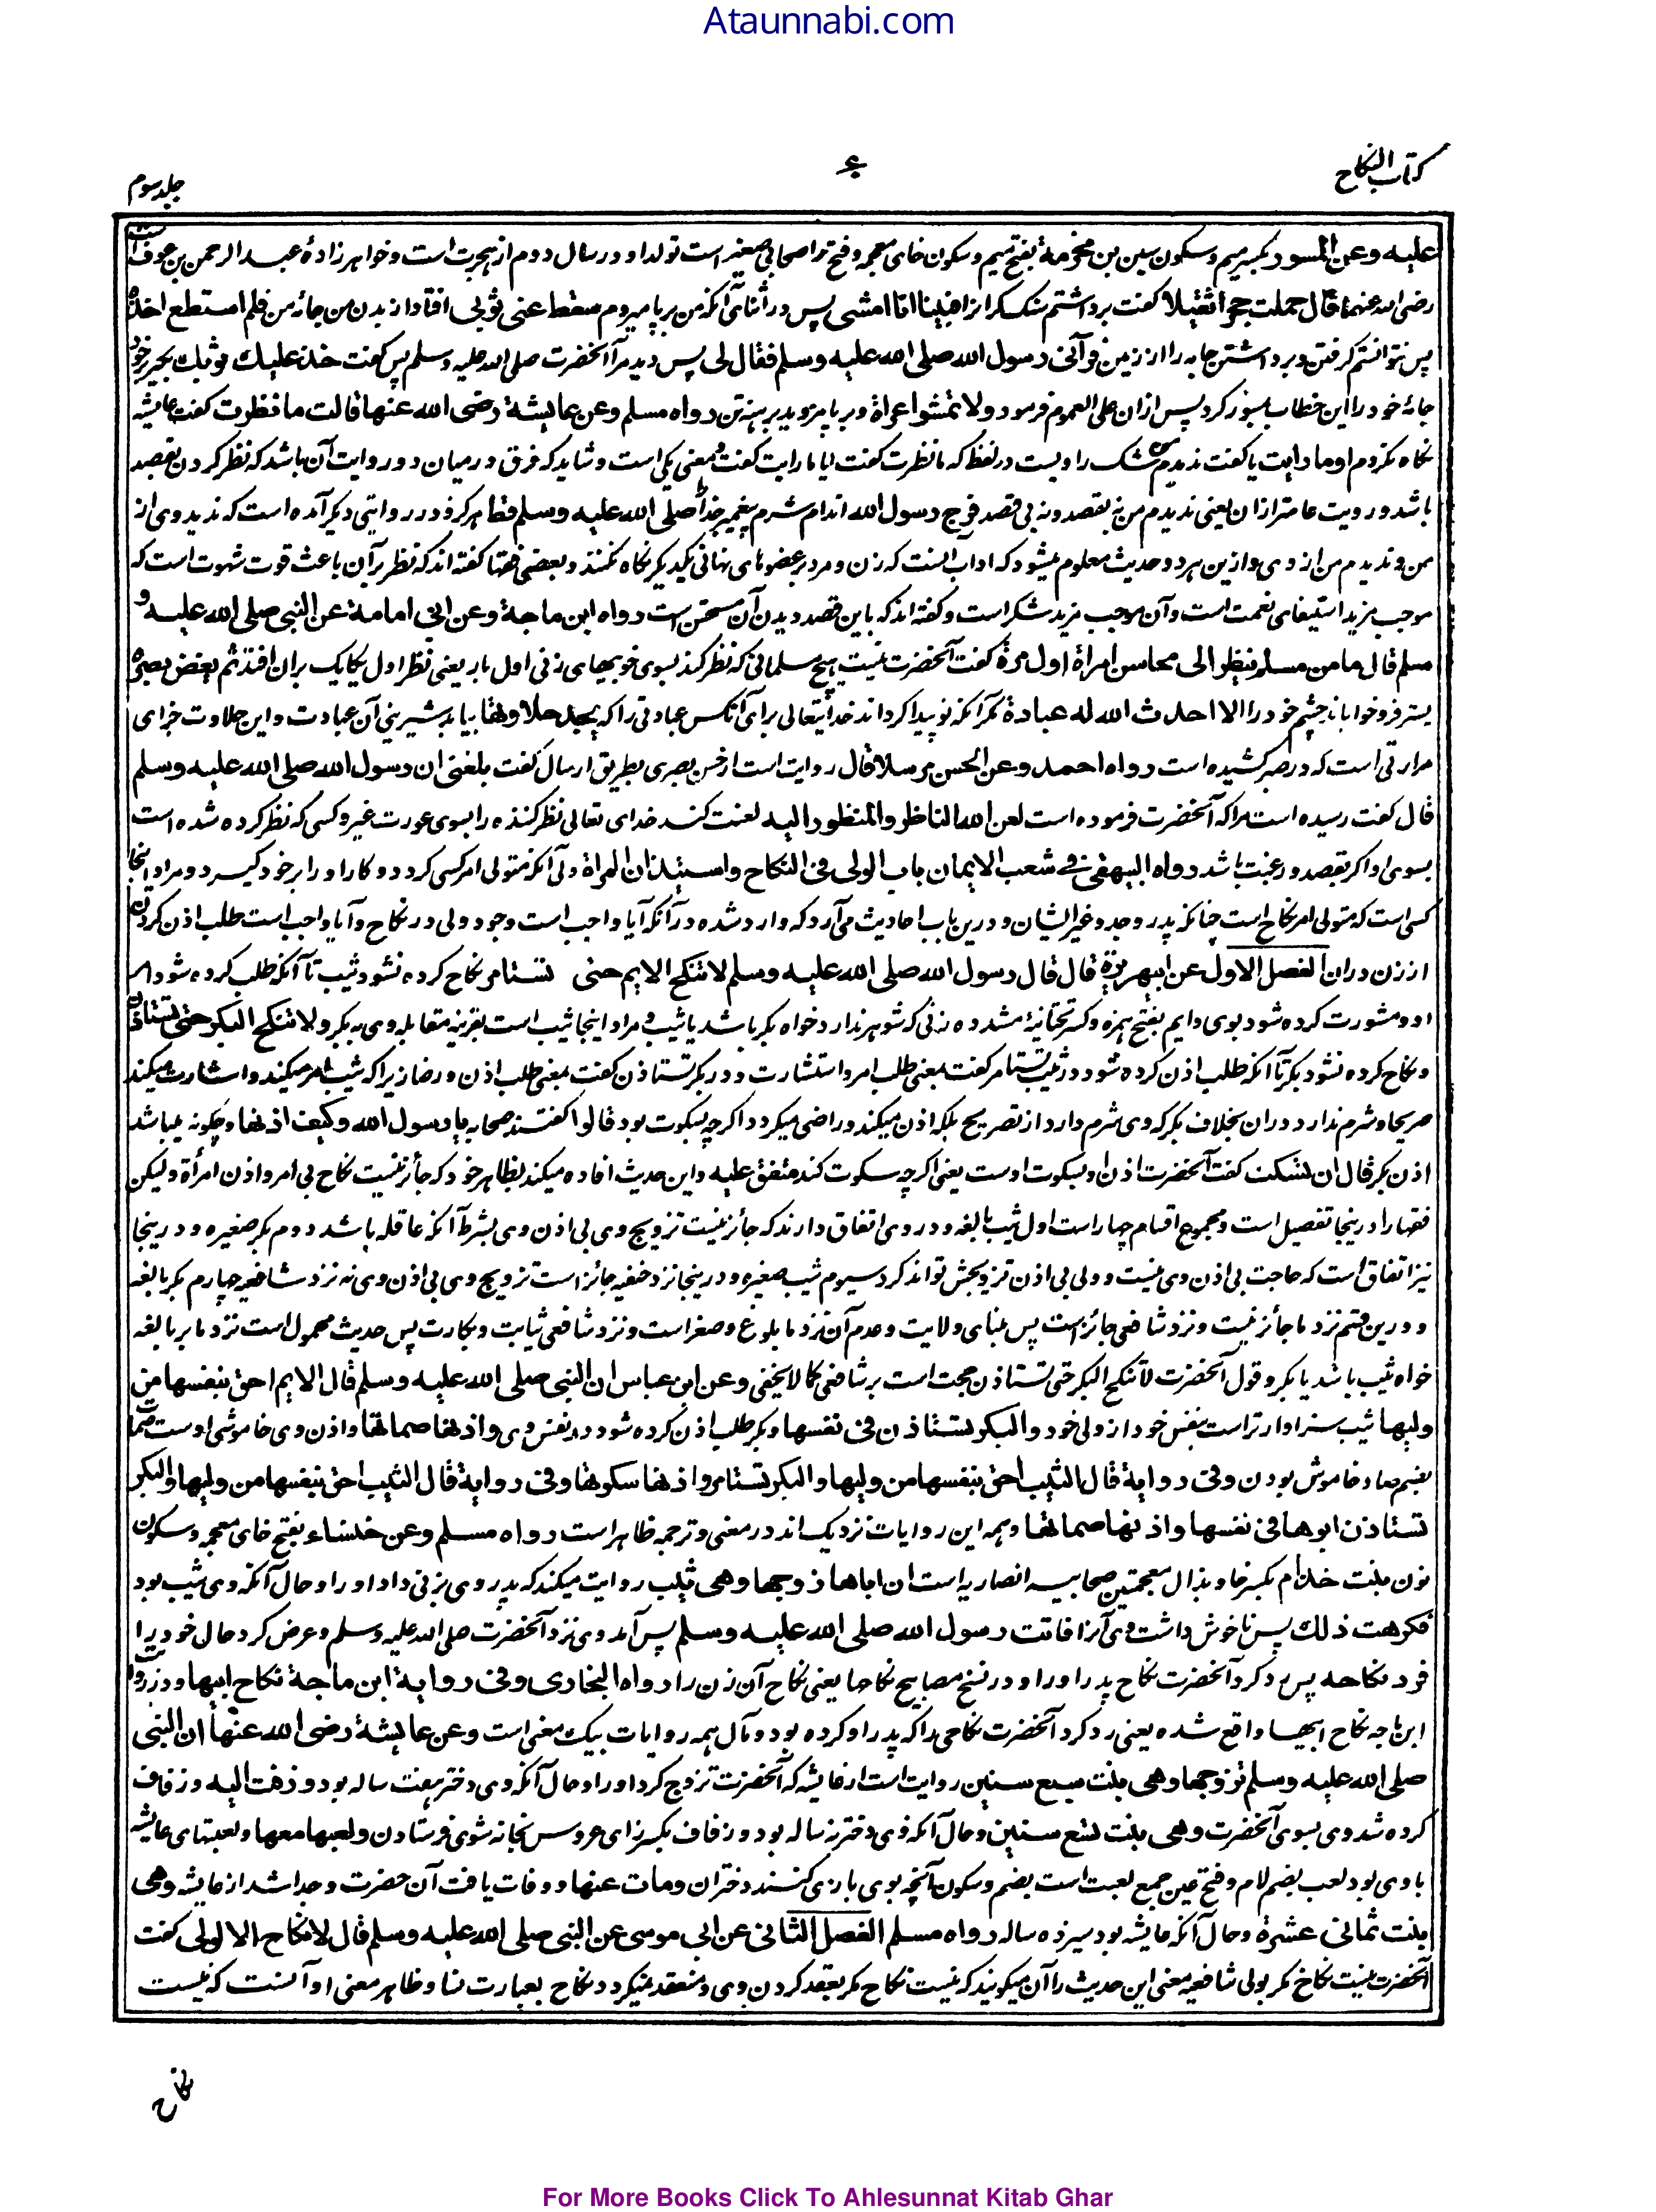 Ataunnabi.com
کتاب النکاح
ع
جلد سوم
علیه وعن المسور بکسر میم وسکون سین بن مخرمة بفتح میم وسکون خای معجمه وفتح را صحابی صغیر است تولد او در سال دوم از هجرت است وخواهر زادۀ عبد الرحمن بن عوف است
رضی الله عنهما قال حملت حجرا ثقیلا گفت برداشتم سنگ گران را فبینا انا امشی پس در اثنای آنکه من بر پا میروم سقط عنی ثوبی افتاد از بدن من جامه من فلم استطع اخذه
پس نتوانستم گرفتن وبرداشتن جامه را از زمین فرآنی رسول الله صلی الله علیه وسلم فقال لی پس دید مرا آنحضرت صلی الله علیه وسلم پس گفت خذ علیک ثوبک بگیر بر خود
جامۀ خود را این خطاب بمسور کرد پس ازان علی العموم فرمود ولا تمشوا عراة وبر پا مروید برهنه تن رواه مسلم وعن عایشة رضی الله عنها قالت ما نظرت گفت عایشه
نگاه نکردم او ما رایت یا گفت ندیدم شک راویست در لفظ که ما نظرت گفت یا ما رایت گفت ومعنی یکی است وشاید که فرق در میان دو روایت آن باشد که نظر کردن بقصد
باشد ورویت عامتر ازان یعنی ندیدم من نه بقصد ونه بی قصد فرج رسول الله اندام شرم پیغمبر خدا صلی الله علیه وسلم قط هرگز ودر روایتی دیگر آمده است که ندید وی از
من وندیدم من از وی وازین هر دو حدیث معلوم میشود که اداب آنست که زن ومرد بر عضوهای نهانی یکدیگر نگاه نکنند وبعضی فقها گفته اند که نظر بر آن باعث قوت شهوت است که
موجب مزید استیفای نعمت است وآن موجب مزید شکر است وگفته اند که باین قصد دیدن آن مستحسن است رواه ابن ماجة وعن ابی امامة عن النبی صلی الله علیه و
سلم قال ما من مسلم ینظر الی محاسن امراة اول مرة گفت آنحضرت نیست هیچ مسلمانی که نظر کند بسوی خوبیهای زنی اول بار یعنی نظر اول یکایک بران افتد ثم یغض بصره
پستر فرو خواباند چشم خود را الا احدث الله له عبادة مگر آنکه نو پیدا گرداند خدایتعالی برای آنکس عبادتی را که یجد حلاوتها بیابد شیرینی آن عبادت واین حلاوت جزای
مرارتی است که در صبر کشیده است رواه احمد وعن الحسن مرسلا قال روایت است از حسن بصری بطریق ارسال گفت بلغنی ان رسول الله صلی الله علیه وسلم
قال گفت رسیده است مرا که آنحضرت فرموده است لعن الله الناظر والمنظور الیه لعنت کند خدای تعالی نظر کننده را بسوی عورت غیر وکسی که نظر کرده شده است
بسوی او اگر بقصد ورغبت باشد رواه البیهقی فی شعب الایمان باب الولی فی النکاح واستیذان المراة ولی آنکه متولی امر کسی گردد وکار او را بر خود گیرد ومراد اینجا
کسی است که متولی امر نکاح است چنانکه پدر وجد وغیر ایشان ودرین باب احادیث می آرد که وارد شده در آنکه آیا واجب است وجود ولی در نکاح وآیا واجب است طلب اذن کردن
از زن دران الفصل الاول عن ابیهریرة قال قال رسول الله صلی الله علیه وسلم لا تنکح الایم حتی تستامر نکاح کرده نشود ثیب تا آنکه طلب کرده شود امر
او ومشورت کرده شود بوی وایم بفتح همزه وکسر تحتانیۀ مشدده زنی که شوهر ندارد خواه بکر باشد یا ثیب ومراد اینجا ثیب است بقرینه مقابله وی به بکر ولا تنکح البکر حتی تستاذن
ونکاح کرده نشود بکر تا آنکه طلب اذن کرده شود ودر ثیب تستامر گفت بمعنی طلب امر واستشارت ودر بکر تستاذن گفت بمعنی طلب اذن ورضا زیرا که ثیب امر میکند واشارت میکند
صریحا وشرم ندارد دران بخلاف بکر که وی شرم دارد از تصریح بلکه اذن میکند وراضی میگردد اگرچه بسکوت بود قالوا گفتند صحابه یا رسول الله وکیف اذنها وچگونه میباشد
اذن بکر قال ان تسکت گفت آنحضرت اذن او بسکوت اوست یعنی اگرچه سکوت کند متفق علیه واین حدیث افاده میکند بظاهر خود که جائز نیست نکاح بی امر واذن امرأة ولیکن
فقها را درینجا تفصیل است ومجموع اقسام چهار است اول ثیب بالغه ودر وی اتفاق دارند که جائز نیست تزویج وی بی اذن وی بشرط آنکه عاقله باشد دوم بکر صغیره ودرینجا
نیز اتفاق است که حاجت بی اذن وی نیست وولی بی اذن تزویجش تواند کرد سیوم ثیب صغیره ودرینجا نزد حنفیه جائز است تزویج وی بی اذن وی نه نزد شافعیه چهارم بکر بالغه
ودرین قسم نزد ما جائز نیست ونزد شافعی جائز است پس مبنای ولایت وعدم آن نزد ما بلوغ وصغر است ونزد شافعی ثیابت وبکارت پس حدیث محمول است نزد ما بر بالغه
خواه ثیب باشد یا بکر وقول آنحضرت لا تنکح البکر حتی تستاذن حجت است بر شافعی کما لا یخفی وعن ابن عباس ان النبی صلی الله علیه وسلم قال الایم احق بنفسها من
ولیها ثیب سزاوارتر است بنفس خود از ولی خود والبکر تستاذن فی نفسها وبکر طلب اذن کرده شود در نفس وی واذنها صماتها واذن وی خاموشی اوست صمات
بضم صاد خاموش بودن وفی روایة قال الثیب احق بنفسها من ولیها والبکر تستامر واذنها سکوتها وفی روایة قال الثیب احق بنفسها من ولیها والبکر
تستاذن ابوها فی نفسها واذنها صماتها وهمه این روایات نزدیک اند در معنی وترجمه ظاهر است رواه مسلم وعن خنساء بفتح خای معجمه وسکون
نون بنت خذام بکسر خا وبذال معجمتین صحابیه انصاریه است ان اباها زوجها وهی ثیب روایت میکند که پدر وی بزنی داد او را وحال آنکه وی ثیب بود
فکرهت ذلک پس ناخوش داشت وی آنرا فاتت رسول الله صلی الله علیه وسلم پس آمد وی نزد آنحضرت صلی الله علیه وسلم وعرض کرد حال خود را
فرد نکاحه پس رد کرد آنحضرت نکاح پدر او را ودر نسخ مصابیح نکاحها یعنی نکاح آن زن را رواه البخاری وفی روایة ابن ماجة نکاح ابیها ودر روایت
ابن ماجه نکاح ابیها واقع شده یعنی رد کرد آنحضرت نکاحی را که پدر او کرده بود ومآل همه روایات بیک معنی است وعن عایشة رضی الله عنها ان النبی
صلی الله علیه وسلم تزوجها وهی بنت سبع سنین روایت است از عایشه که آنحضرت تزوج کرد او را وحال آنکه وی دختر هفت ساله بود وزفت الیه وزفاف
کرده شد وی بسوی آنحضرت وهی بنت تسع سنین وحال آنکه وی دختر نه ساله بود وزفاف بکسر زای عروس بخانه شوی فرستادن ولعبها معها ولعبتهای عایشه
با وی بود لعب بضم لام وفتح عین جمع لعبت است بضم وسکون آنچه بوی بازی کنند دختران ومات عنها ووفات یافت آن حضرت وجدا شد از عایشه وهی
بنت ثمانی عشرة وحال آنکه عایشه بود سیزده ساله رواه مسلم الفصل الثانی عن ابی موسی عن النبی صلی الله علیه وسلم قال لا نکاح الا بولی گفت
آنحضرت نیست نکاح مگر بولی شافعیه معنی این حدیث را آن میگویند که نیست نکاح مگر بعقد کردن ولی ومنعقد نمیگردد نکاح بعبارت نسا وظاهر معنی او آنست که نیست
نکاح
For More Books Click To Ahlesunnat Kitab Ghar